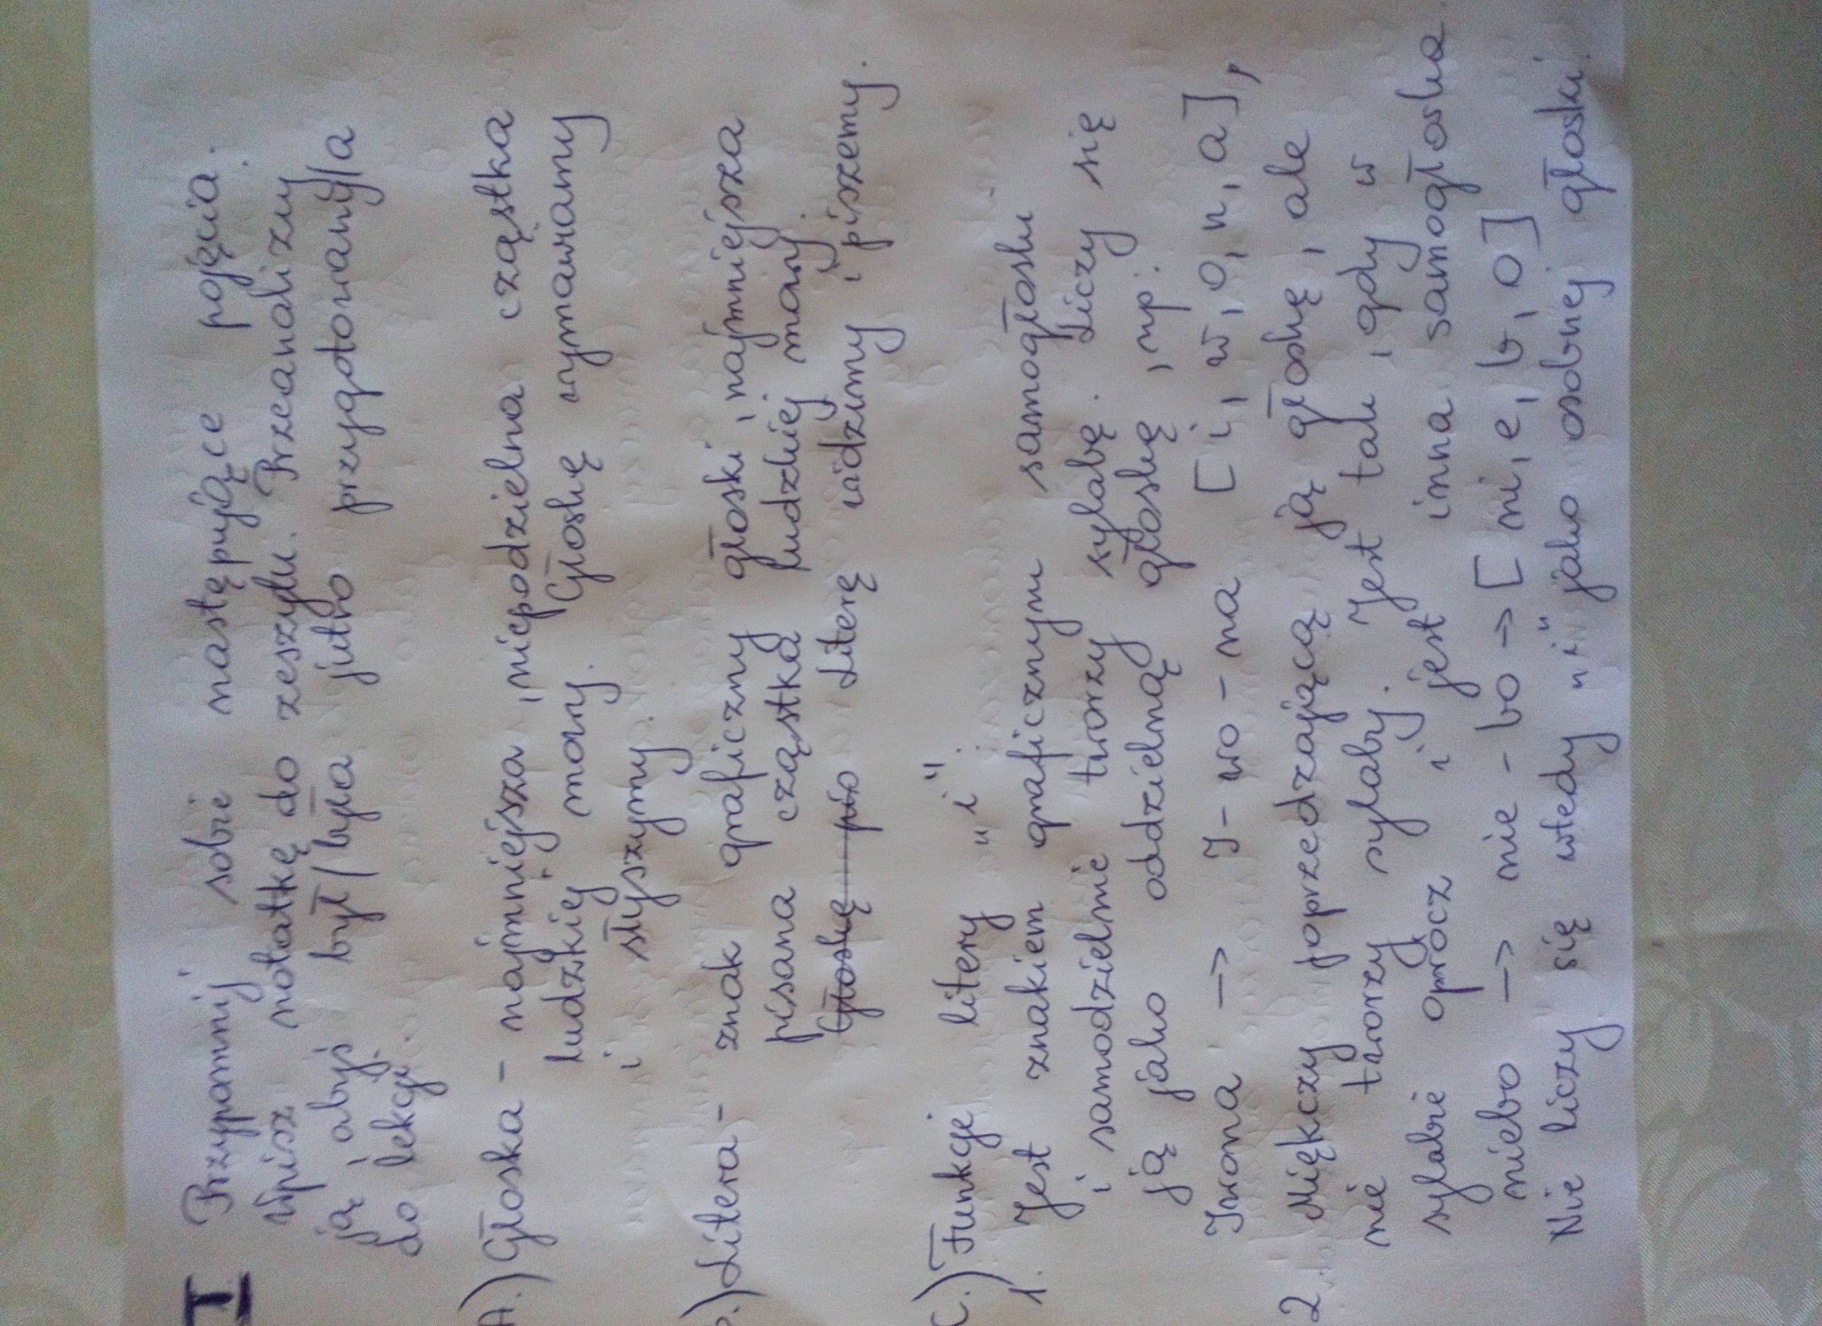 I Przypomnij sobie następujące pojęcia.
Wpisz notatkę do zeszytu. Przeanalizuj
ją, abyś był/była jutro przygotowany/a
do lekcji.
A.) Głoska - najmniejsza, niepodzielna cząstka
ludzkiej mowy. Głoskę wymawiamy
i słyszymy.
B.) Litera - znak graficzny głoski, najmniejsza
pisana cząstka ludzkiej mowy.
Głoskę pis Literę widzimy i piszemy.
C.) Funkcje litery "i".
1. Jest znakiem graficznym samogłoski
i samodzielnie tworzy sylabę. Liczy się
ją jako oddzielną głoskę, np.:
Iwona -> I - wo - na [i, w, o, n, a],
2. Miękczy poprzedzającą ją głoskę, ale
nie tworzy sylaby. Jest tak, gdy w
sylabie oprócz i jest inna samogłoska
niebo -> nie - bo -> [ni, e, b, o]
Nie liczy się wtedy "i" jako osobnej głoski.